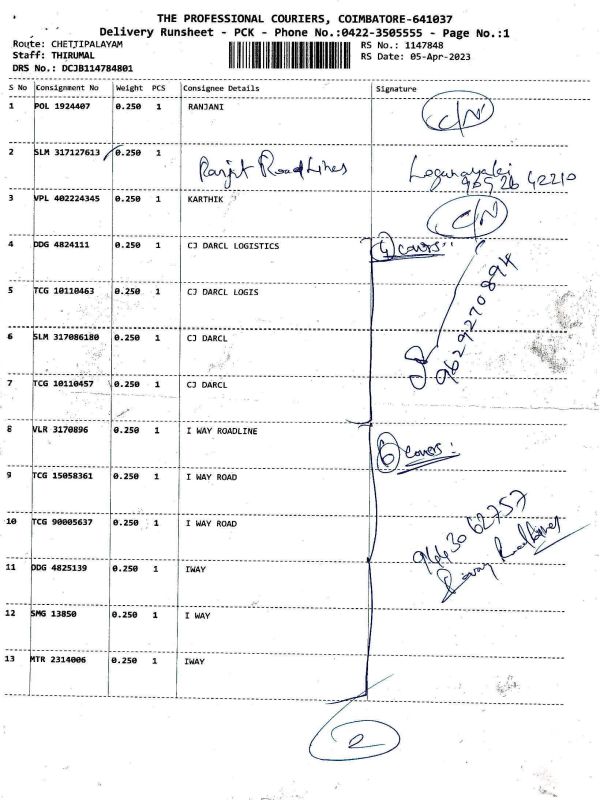 THE PROFESSIONAL COURIERS, COIMBATORE-641037
Delivery Runsheet - PCK - Phone No.:0422-3505555 - Page No.:1
Route: CHETTIPALAYAM
RS No.: 1147848
Staff: THIRUMAL
RS Date: 05-Apr-2023
DRS No.: DCJB114784801
S No Consignment No Weight PCS Consignee Details Signature
1 POL 1924407 0.250 1 RANJANI C/N
2 SLM 317127613 0.250 1 Ranjit Roadlines Loganayaki
3 VPL 402224345 0.250 1 KARTHIK C/N
4 DDG 4824111 0.250 1 CJ DARCL LOGISTICS 4 covers:
5 TCG 10110463 0.250 1 CJ DARCL LOGIS
9629270894
6 SLM 317086180 0.250 1 CJ DARCL
7 TCG 10110457 0.250 1 CJ DARCL
8 VLR 3170896 0.250 1 I WAY ROADLINE 6 covers:
9 TCG 15058361 0.250 1 I WAY ROAD
10 TCG 90005637 0.250 1 I WAY ROAD
9443062757
11 DDG 4825139 0.250 1 IWAY
12 SMG 13850 0.250 1 I WAY
13 MTR 2314006 0.250 1 IWAY
2